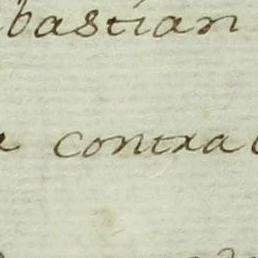 bastian
contra